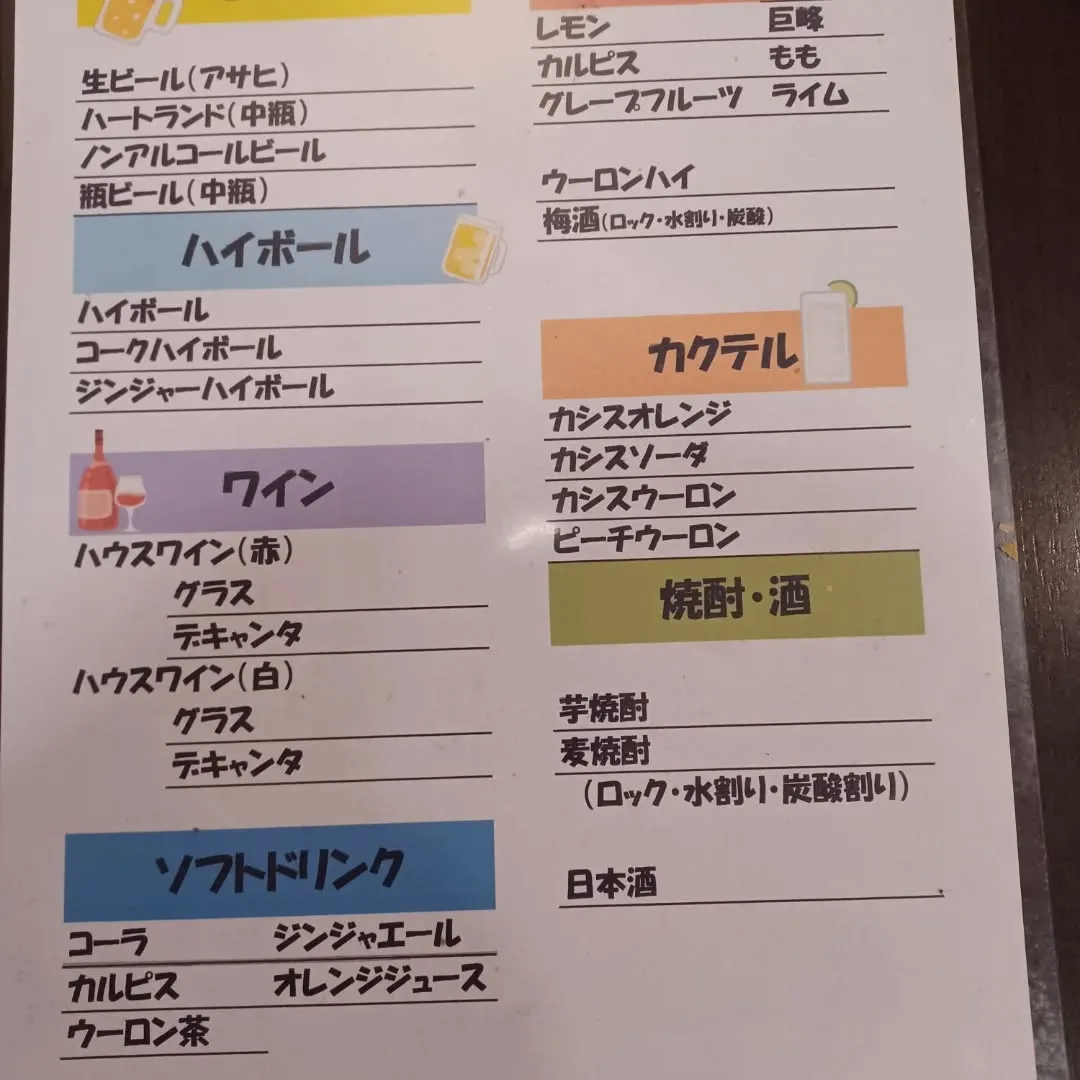 生ビール(アサヒ)
ハートランド(中瓶)
ノンアルコールビール
瓶ビール(中瓶)
ハイボール
ハイボール
コークハイボール
ジンジャーハイボール
ワイン
ハウスワイン(赤)
グラス
デキャンタ
ハウスワイン(白)
グラス
デキャンタ
ソフトドリンク
コーラ ジンジャエール
カルピス オレンジジュース
ウーロン茶
レモン 巨峰
カルピス もも
グレープフルーツ ライム
ウーロンハイ
梅酒(ロック・水割り・炭酸)
カクテル
カシスオレンジ
カシスソーダ
カシスウーロン
ピーチウーロン
焼酎・酒
芋焼酎
麦焼酎
(ロック・水割り・炭酸割り)
日本酒